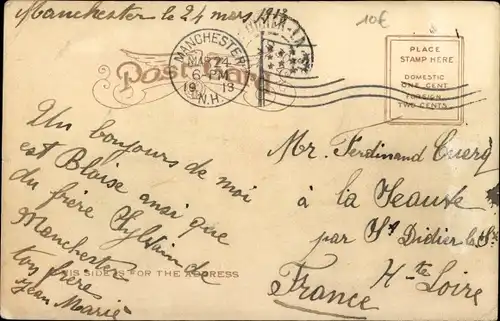 Manchester le 24 mars 1913
10€
Post Card
MANCHESTER
MAR 24
6-PM
1913
N.H.
PLACE
STAMP HERE
DOMESTIC
ONE CENT
FOREIGN
TWO CENTS
Un bonjours de moi
est Blaise ansi que
du frère Sylvain de
Manchester
ton frère
Jean Marie
Mr. Ferdinand Cuerq
à la
par St Didier la
Hte Loire
France
THIS SIDE IS FOR THE ADDRESS